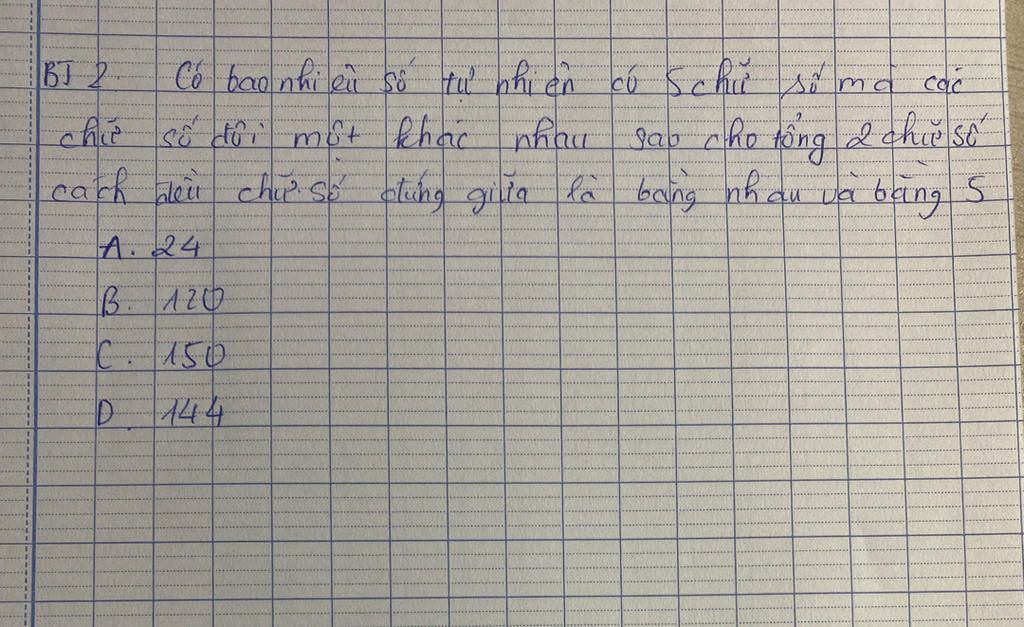 BT 2. Có bao nhiêu số tự nhiên có 5 chữ số mà các
chữ số đôi một khác nhau sao cho tổng 2 chữ số
cách đều chữ số đứng giữa là bằng nhau và bằng 5
A. 24
B. 120
C. 150
D. 144